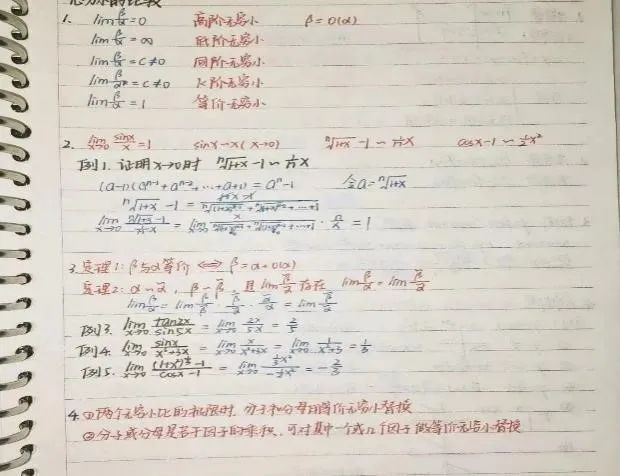 无穷小的比较
1. lim β/α = 0 高阶无穷小 β = o(α)
lim β/α = ∞ 低阶无穷小
lim β/α = c ≠ 0 同阶无穷小
lim β/αᵏ = c ≠ 0 k阶无穷小
lim β/α = 1 等价无穷小
2. lim x→0 sinx/x = 1 sinx ~ x (x→0) ⁿ√(1+x) - 1 ~ 1/n x cosx - 1 ~ 1/2 x²
例1. 证明x→0时 ⁿ√(1+x) - 1 ~ 1/n x
(a-1)(aⁿ⁻¹ + aⁿ⁻² + ... + a + 1) = aⁿ - 1 令a = ⁿ√(1+x)
3. 定理1: β与α等价 ⟺ β = α + o(α)
定理2: α ~ α̃, β ~ β̃, 且 lim β̃/α̃ 存在 lim β/α = lim β̃/α̃
lim β/α = lim β/β̃ · β̃/α̃ · α̃/α = lim β̃/α̃
例3. lim x→0 tan2x/sin5x = lim x→0 2x/5x = 2/5
例4. lim x→0 sinx/(x³+3x) = lim x→0 x/(x³+3x) = lim x→0 1/(x²+3) = 1/3
例5. lim x→0 ((1+x²)^⅓ - 1)/(cosx - 1) = lim x→0 (⅓x²)/(-½x²) = -2/3
4. ①两个无穷小比的极限时, 分子和分母用等价无穷小替换
②分子或分母是若干因子的乘积, 可对其中一个或几个因子做等价无穷小替换